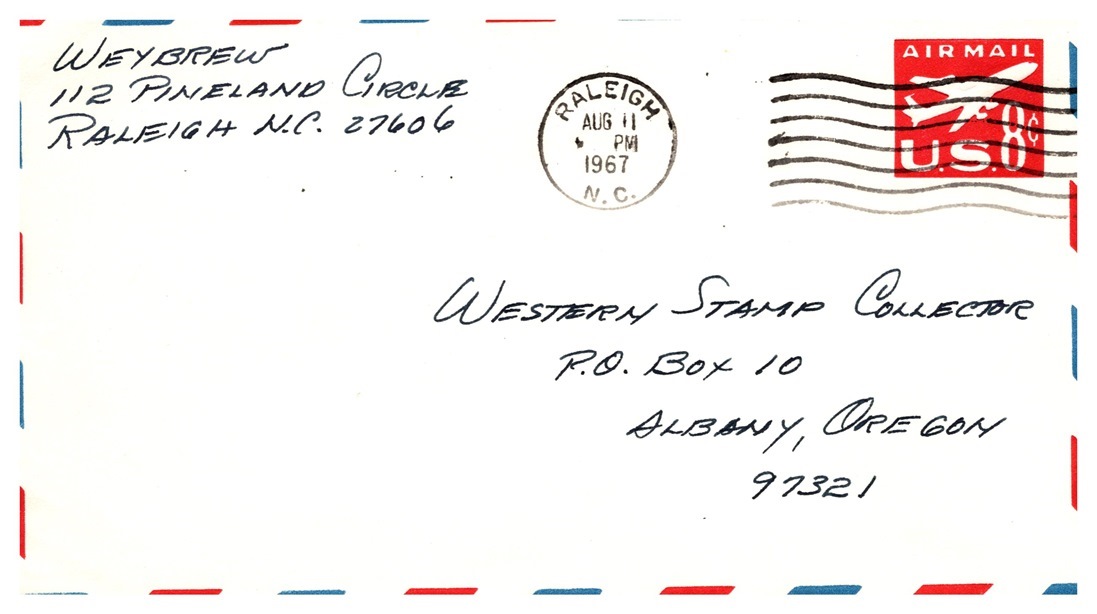 WEYBREW
112 PINELAND CIRCLE
RALEIGH N.C. 27606
RALEIGH
AUG 11
PM
1967
N.C.
AIR MAIL
U.S. 8¢
WESTERN STAMP COLLECTOR
P.O. BOX 10
ALBANY, OREGON
97321